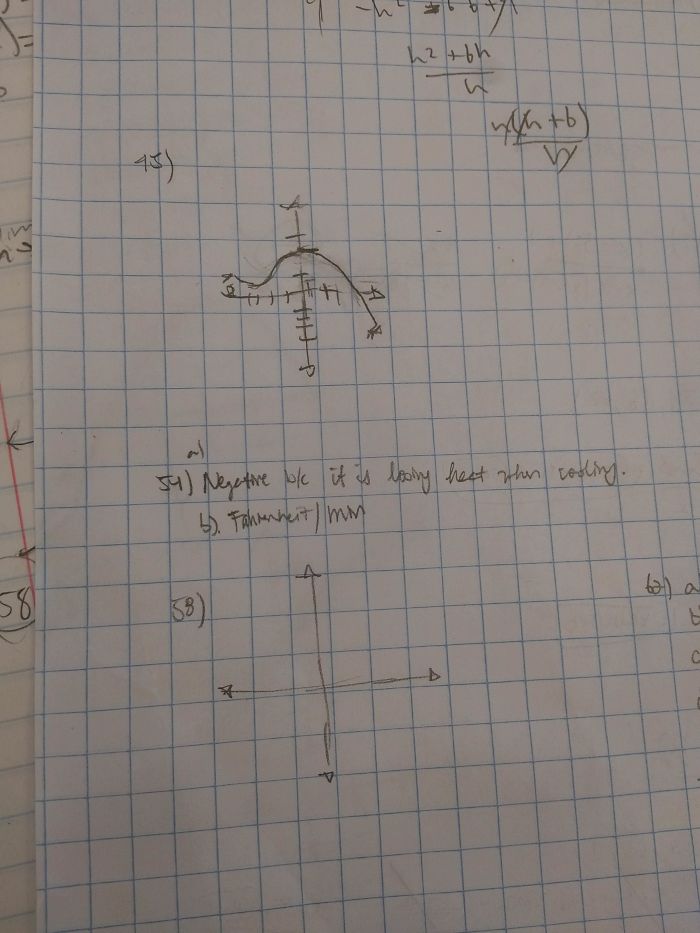 h² + 6h
h
h(h + 6)
h
45)
a)
54) Negative b/c it is losing heat when cooling.
b). Fahrenheit/min
58)
58
62) a
b
c